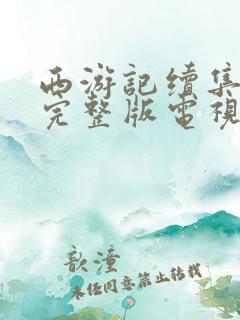 西游記續集
完整版電視
歆潼
未經同意禁止轉載